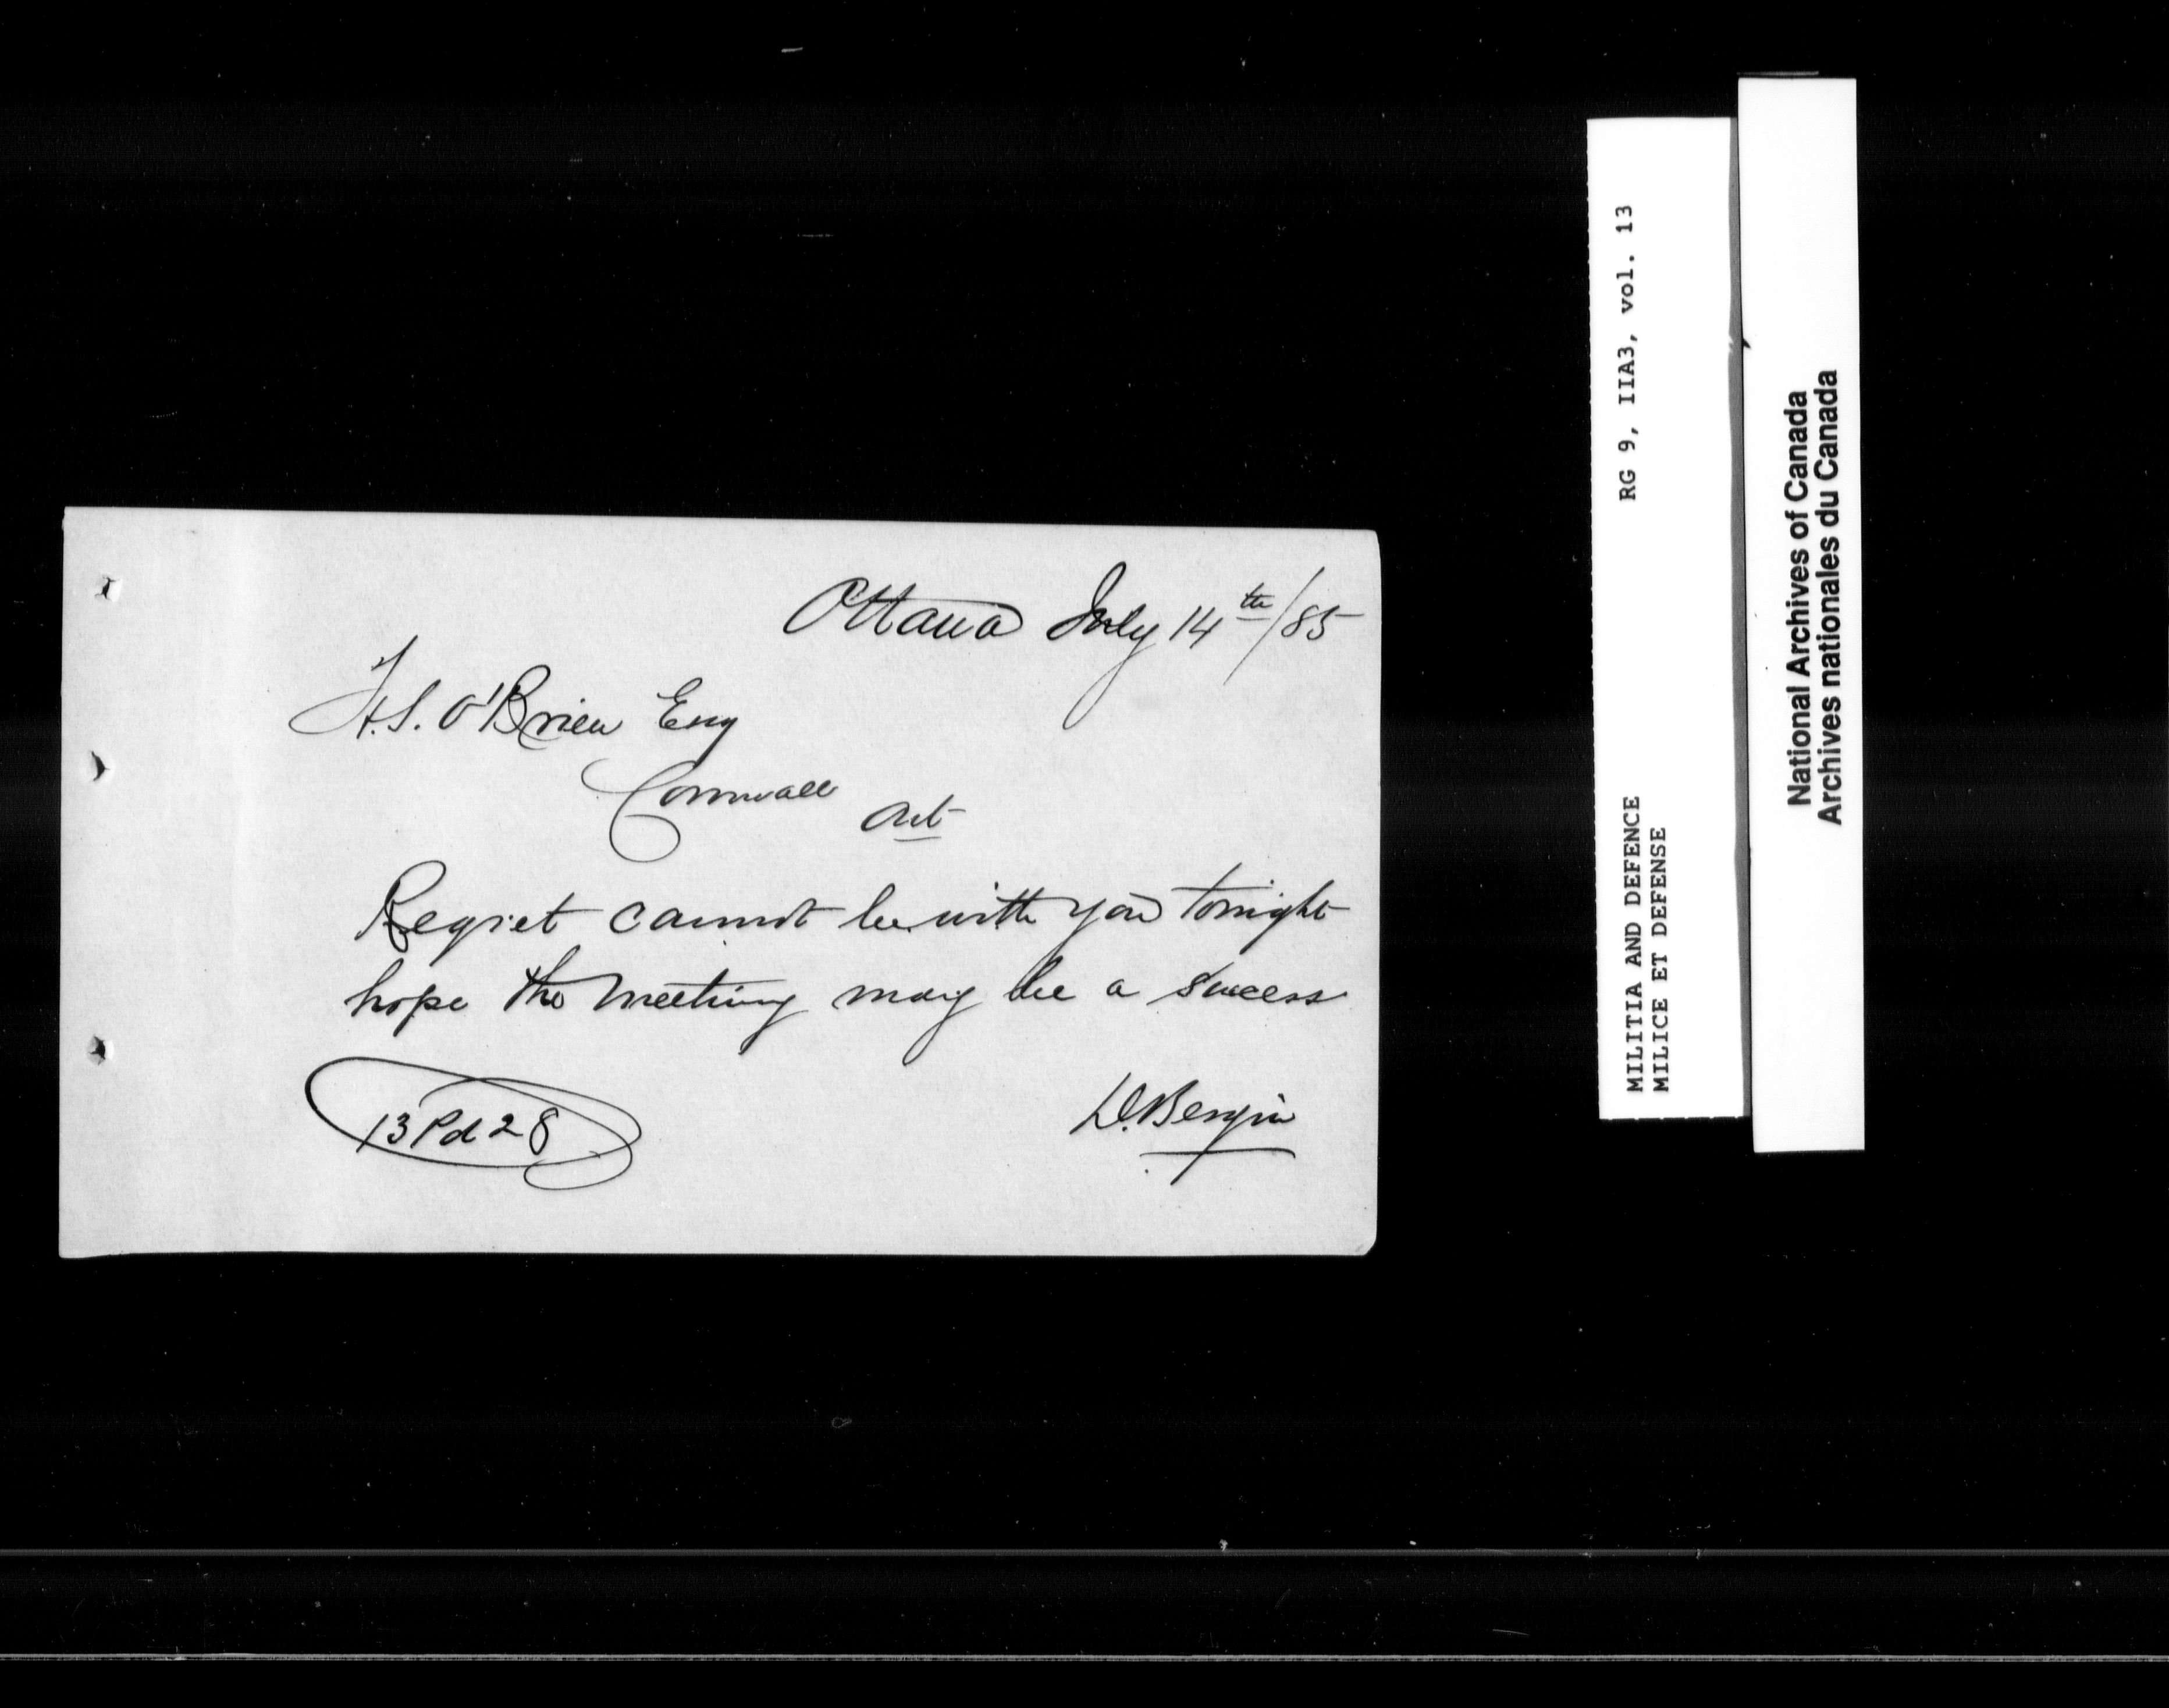 Ottawa July 14th/85
F.S. O'Brien Esq
Cornwall Ont
Regret cannot be with you tonight
hope the meeting may be a success
13 Pd 28
D. Bergin
MILITIA AND DEFENCE RG 9, IIA3, vol. 13
MILICE ET DEFENSE
National Archives of Canada
Archives nationales du Canada